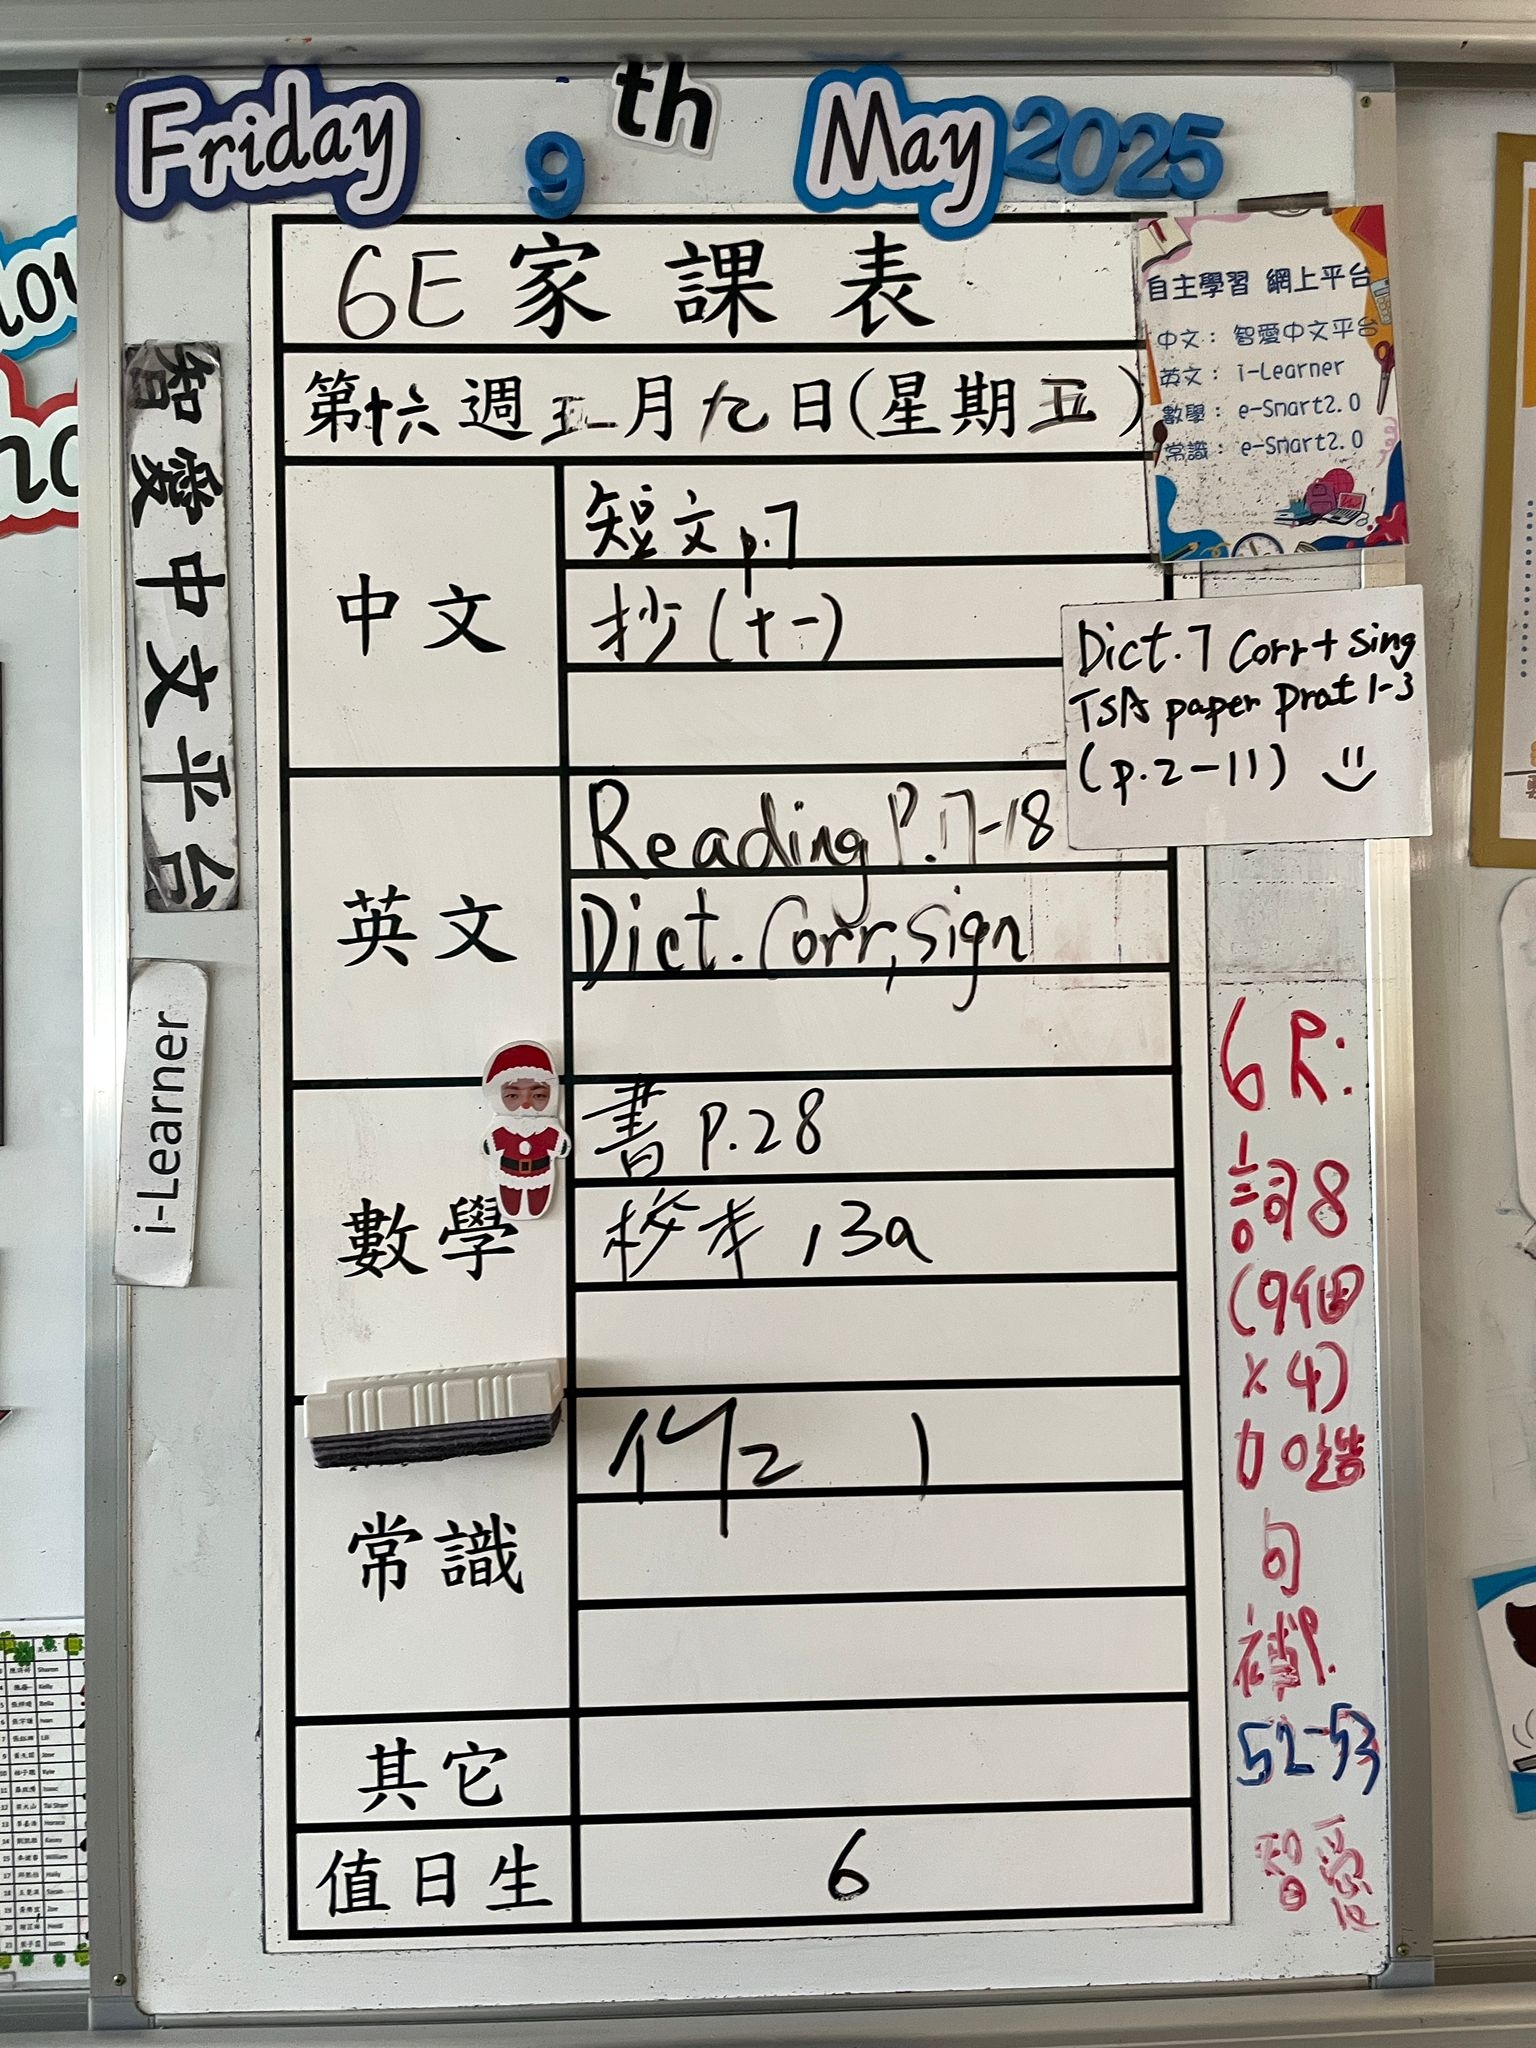 Friday 9th May 2025
6E 家課表
第十六週五月九日(星期五)
中文
短文 p.7
抄(十一)
英文
Reading P.17-18
Dict. Corr, sign
數學
書 P.28
13a
常識
1
其它
值日生
6
自主學習 網上平台
中文： 智愛中文平台
英文： i-Learner
數學： e-Smart2.0
常識： e-Smart2.0
Dict. 7 Corr + Sing
TSA paper Prat 1-3
(p.2-11)
6R:
詞8
(9個
x4)
加造
句
補
52-53
智愛
智愛中文平台
i-Learner